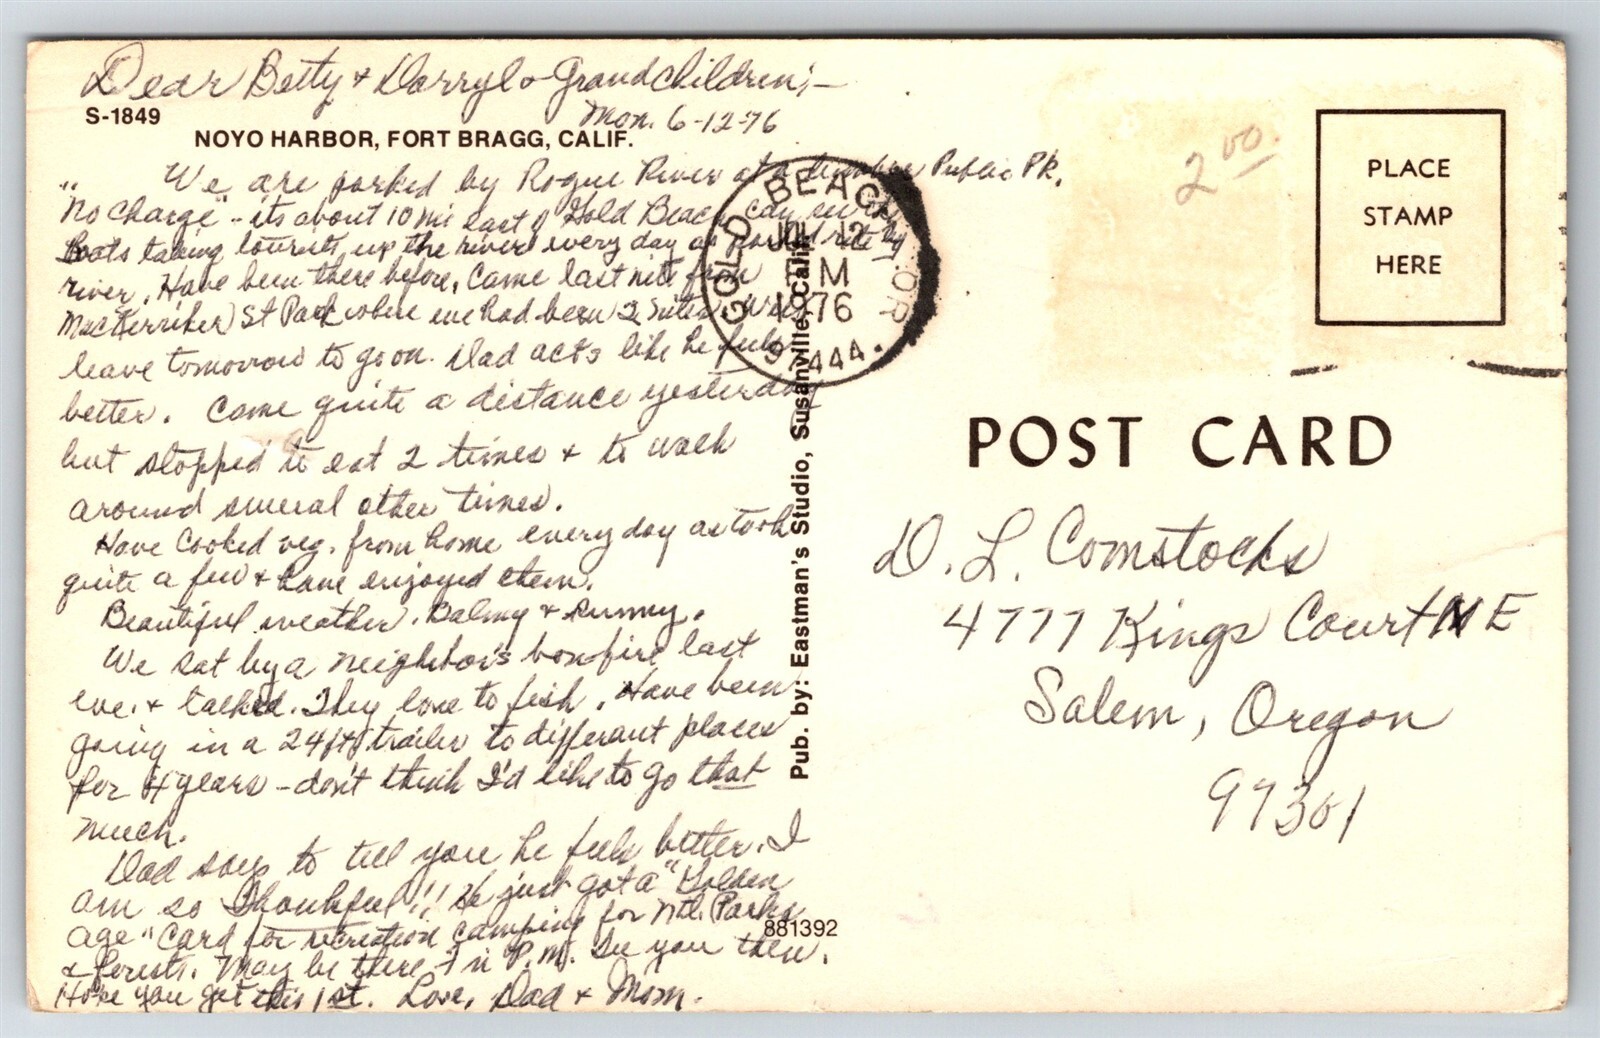 Dear Betty + Darryl + Grandchildren; —
Mon. 6-12-76
S-1849
NOYO HARBOR, FORT BRAGG, CALIF.
We are parked by Rogue River at a Public Pk.
"No Charge" - its about 10 mi east of Gold Beach, can
Boats taking tourists up the river every day as parked rite by
river. Have been there before. Came last nite from
MacKerricher St Park where we had been 2 nites. Will
leave tomorrow to go on. Dad acts like he feels
better. Came quite a distance yesterday
but stopped to eat 2 times + to walk
around several other times.
Have cooked veg. from home every day as took
quite a few + have enjoyed them.
Beautiful weather. Balmy + sunny.
We sat by a neighbor's bonfire last
eve. + talked. They love to fish. Have been
going in a 24 ft trailer to differant places
for 4 years - don't think I'd like to go that
much.
Dad says to tell you he feels better. I
am so Thankful!! He just got a "Golden
age" Card for recreation camping for Ntl. Parks
+ forests. May be there in P.M. See you then.
Hope you get this 1st. Love, Dad + Mom.
881392
Pub. by: Eastman's Studio, Susanville, Calif.
GOLD BEACH, OR
JUL 12
PM
1976
97444
2.00
PLACE
STAMP
HERE
POST CARD
D. L. Comstocks
4777 Kings Court NE
Salem, Oregon
97301